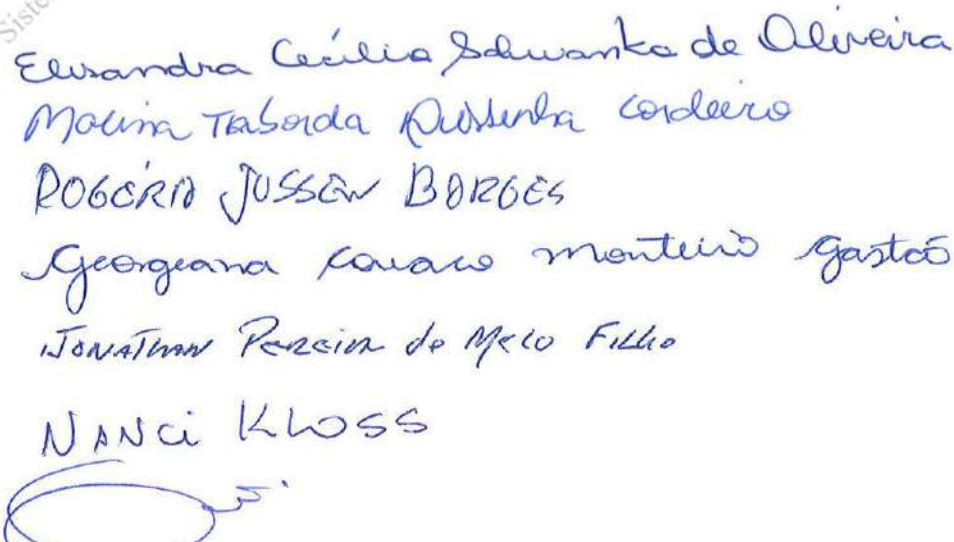 Siste
Elisandra Cecília Schwanka de Oliveira
Taborda Cordeiro
ROGÉRIO JUSSEN BORGES
Georgeana Monteiro Gastão
JONATHAN PEREIRA de Melo Filho
NANCi KLOSS